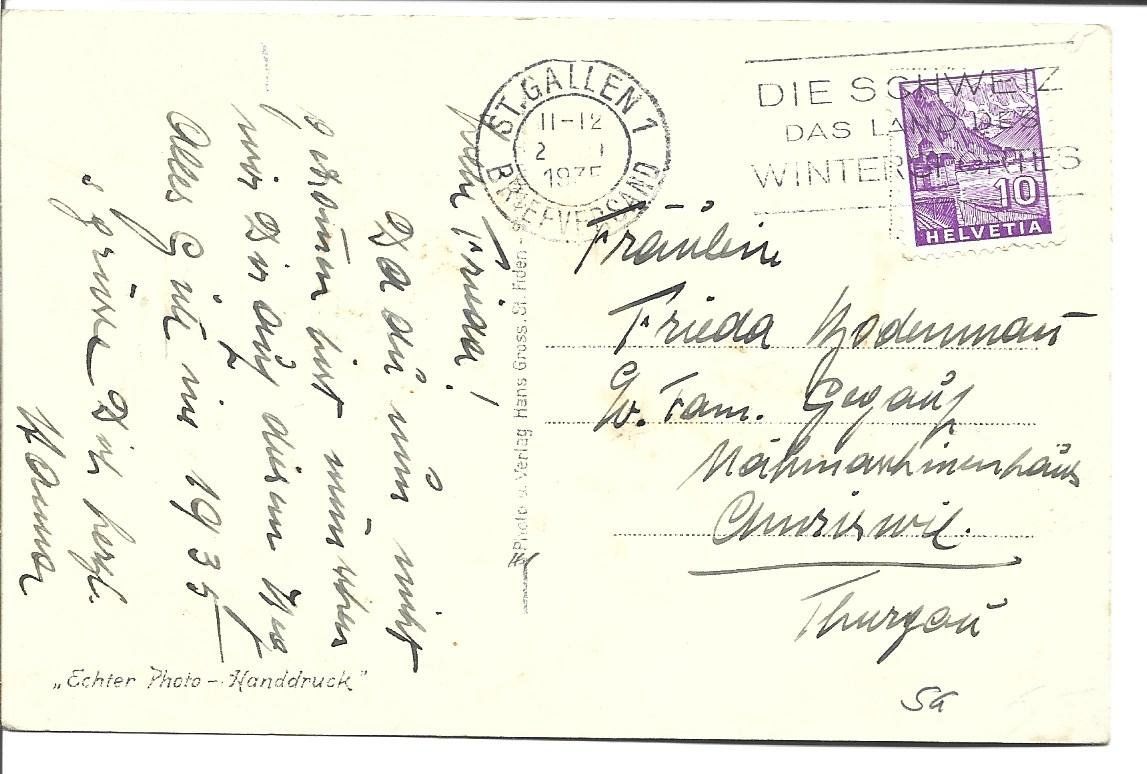 Liebe Frieda!
Da du nun nicht
gekommen bist wünschen
wir Dir auf diesem Weg
alles Gute im 1935
grüsse Dich herzl.
"Echter Photo-Handdruck"
Photo u. Verlag Hans Gross, St. Fiden-
ST. GALLEN 1
11-12
2. I
1935
BRIEFVERSAND
DIE SCHWEIZ
DAS LAND DES
WINTERSPORTES
10
HELVETIA
Fräulein
Frieda Bodenmann
b. Fam. Gegauf
Nähmaschinenhaus
Amriswil.
Thurgau
SG